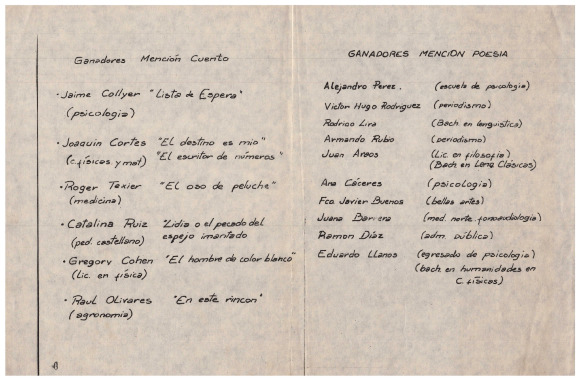 Ganadores Mención Cuento
• Jaime Collyer "Lista de Espera"
(psicologia)
• Joaquin Cortes "El destino es mio"
(c.físicas y mat) "El escritor de números"
• Roger Texier "El oso de peluche"
(medicina)
• Catalina Ruiz "Lidia o el pecado del
(ped. castellano) espejo imantado
• Gregory Cohen "El hombre de color blanco"
(Lic. en física)
• Raul Olivares "En este rincon"
(agronomia)
GANADORES MENCION POESIA
Alejandro Perez. (escuela de psicologia)
Victor Hugo Rodriguez (periodismo)
Rodrigo Lira (Bach. en lenguistica)
Armando Rubio (periodismo)
Juan (Lic. en filosofia)
(Bach en Leng Clásicas)
Ana Cáceres (psicologia)
Fco. Javier Buenos (bellas artes)
Juana (med. norte. fonoaudiologia)
Ramon Díaz (adm. pública)
Eduardo Llanos (egresado de psicologia)
(bach. en humanidades en
C. físicas)